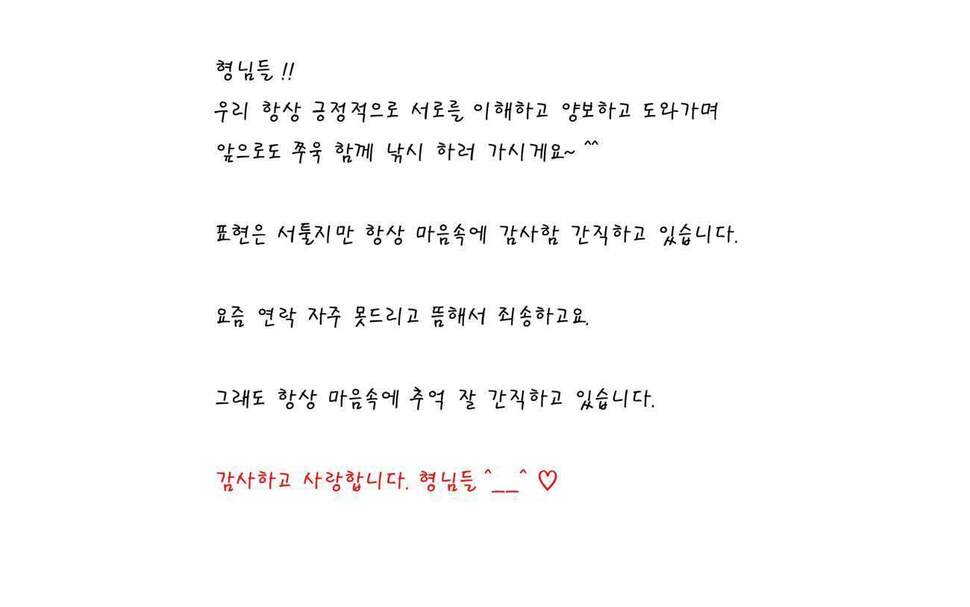 형님들 !!
우리 항상 긍정적으로 서로를 이해하고 양보하고 도와가며
앞으로도 쭈욱 함께 낚시 하러 가시게요~ ^^
표현은 서툴지만 항상 마음속에 감사함 간직하고 있습니다.
요즘 연락 자주 못드리고 뜸해서 죄송하고요.
그래도 항상 마음속에 추억 잘 간직하고 있습니다.
감사하고 사랑합니다. 형님들 ^__^ ♡